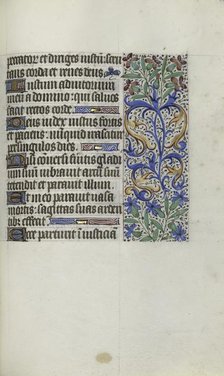 peccator et diriges iustu: scru
tans corda et renes deus
Iustum adiutorium
meu a domino: qui saluos
facit rectos corde.
Deus iudex iustus fortis
et paciens: nunquid irascitur
per singulos dies.
Nisi conuersi fueritis gladi
um suu vibrauit arcu suu
tetendit et parauit illum.
Et in eo parauit vasa
mortis: sagittas suas arden
tibus effecit.
Ecce parturiit iniusticia